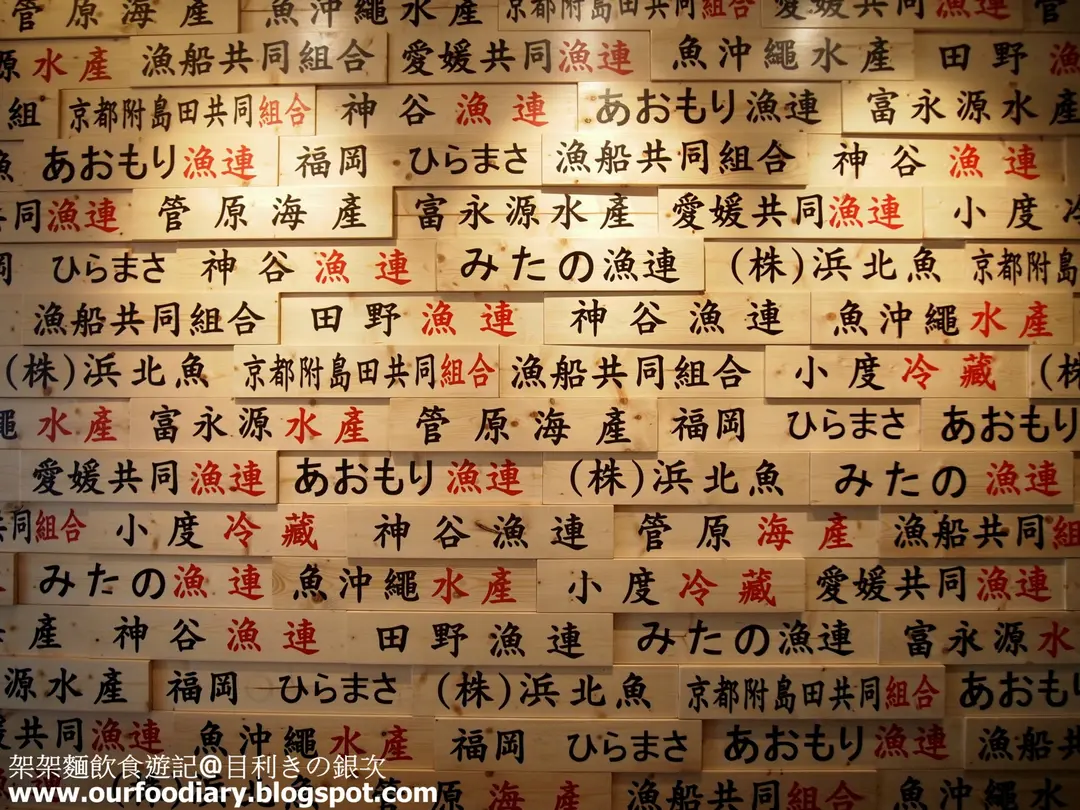 原海產 魚沖繩水產 京都附島田共同組合 愛媛共同漁連 管
源水產 漁船共同組合 愛媛共同漁連 魚沖繩水產 田野漁
組 京都附島田共同組合 神谷漁連 あおもり漁連 富永源水產
あおもり漁連 福岡 ひらまさ 漁船共同組合 神谷漁連
共同漁連 管原海產 富永源水產 愛媛共同漁連 小度冷
岡 ひらまさ 神谷漁連 みたの漁連 (株)浜北魚 京都附島
漁船共同組合 田野漁連 神谷漁連 魚沖繩水產
(株)浜北魚 京都附島田共同組合 漁船共同組合 小度冷藏 (株
繩水產 富永源水產 管原海產 福岡 ひらまさ あおもり
愛媛共同漁連 あおもり漁連 (株)浜北魚 みたの漁連
共同組合 小度冷藏 神谷漁連 管原海產 漁船共同組
みたの漁連 魚沖繩水產 小度冷藏 愛媛共同漁連
產 神谷漁連 田野漁連 みたの漁連 富永源水
源水產 福岡 ひらまさ (株)浜北魚 京都附島田共同組合 あおも
媛共同漁連 魚沖繩水產 福岡 ひらまさ あおもり漁連 漁船共
原海產 漁船共同組合 魚沖繩水
架架麵飲食遊記@目利きの銀次
www.ourfoodiary.blogspot.com